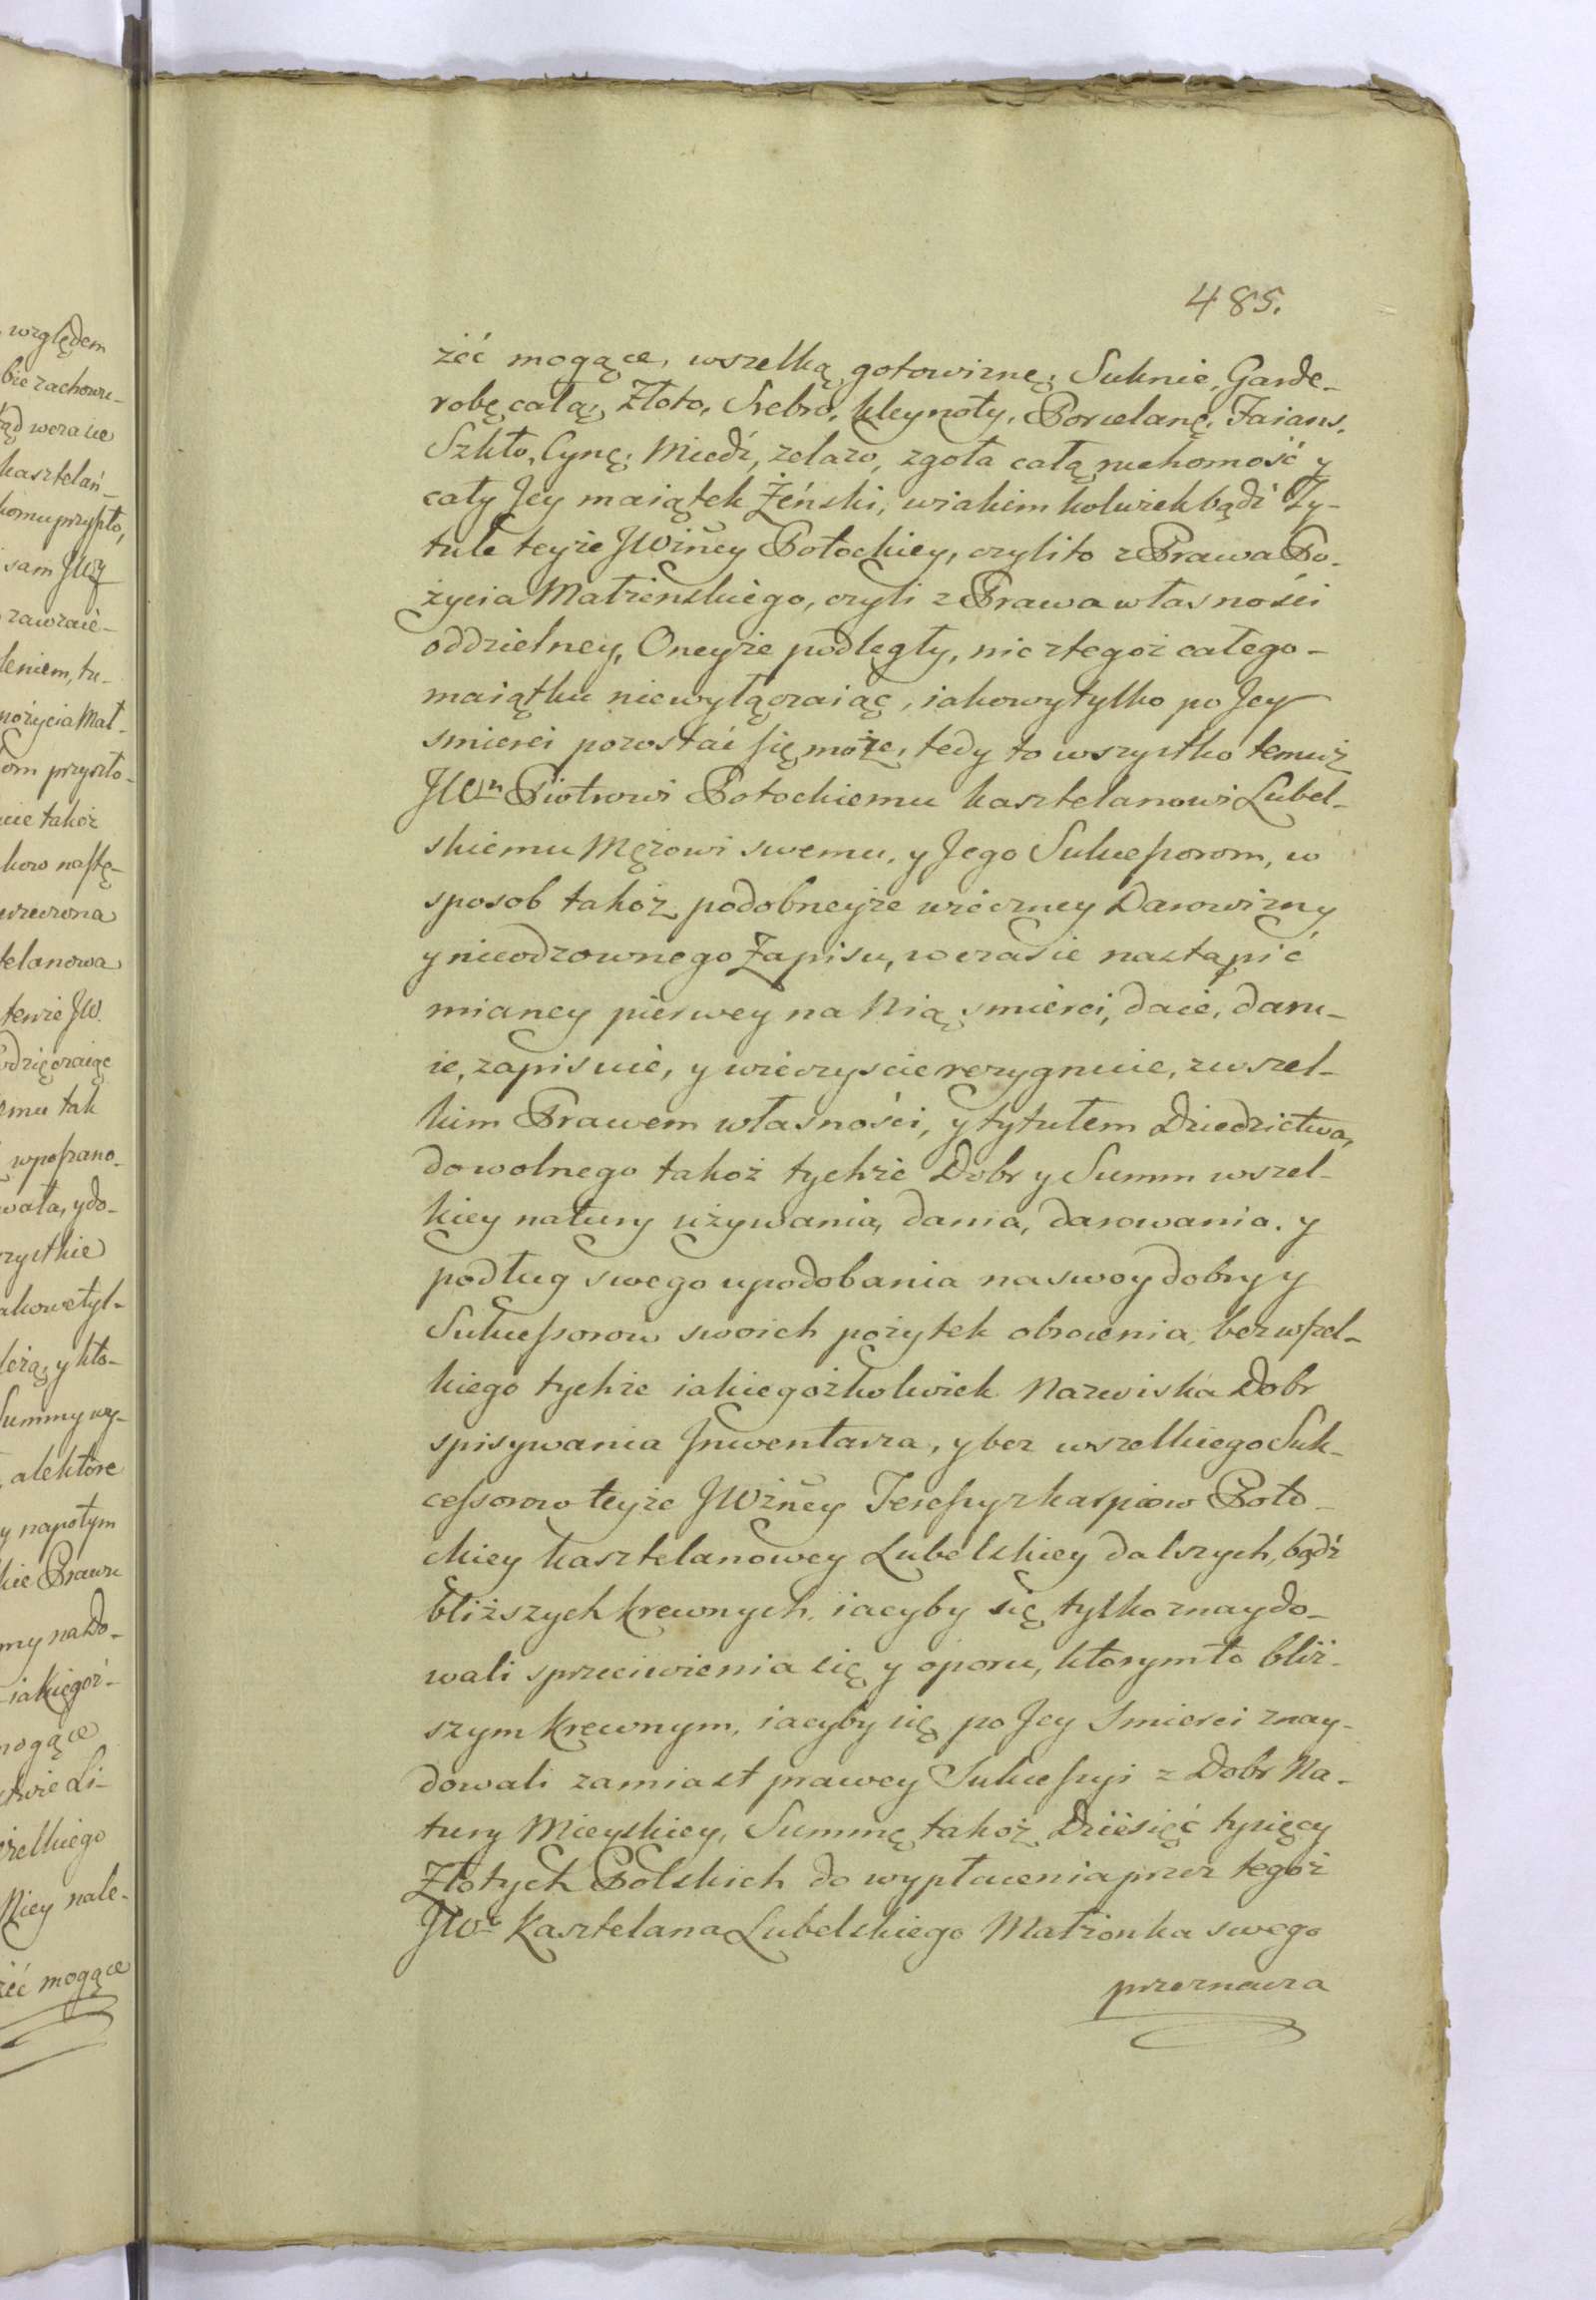 485.
żéć mogące, wszelką gotowiznę, Suknie, Garde-
robę całą, Złoto, Srebro, kleynoty, Porcelanę, Faians,
Szkło, Cynę, Miedź, zelazo, zgoła całą ruchomość y
cały Jey maiątek Żeński, wiakim kolwiek bądź Ty-
tule teyże JWżney Potockiey, czylito z Prawa Po-
życia Małżenskiego, czyli z Prawa własności
oddzielney, Oneyże podległy, nic ztegoż całego-
maiątku niewyłączaiąc, iakowy tylko po Jey
smierci pozostać się może, tedy to wszystko temuż
JWu Piotrowi Potockiemu kasztelanowi Lubel-
skiemu Mężowi swemu, y Jego Sukcessorom, w
sposob takoż podobneyże wieczney Darowizny
y nieodzownego Zapisu, wczasie nastąpić
mianey pierwey na Nią smierci, daie, daru-
ie, zapisuie, y wieczyscie rezygnuie, zwszel-
kim Prawem własności, y tytułem Dziedzictwa,
do wolnego takoż tychże Dobr y Summ wszel-
kiey natury używania, dania, darowania, y
podług swego upodobania na swoy dobry y
Sukcessorow swoich pożytek obrocenia, bez wszel-
kiego tychże iakiegożkolwiek Nazwiska Dobr
spisywania Jnwentarza, y bez wszelkiego Suk-
cessorow teyże JWżney Teressy z karpiow Poto-
ckiey kasztelanowey Lubelskiey dalszych, bądź
bliższych krewnych, iacyby się tylko znaydo-
wali sprzeciwienia się y oporu, ktorym to bliż-
szym krewnym, iacyby się po Jey Smierci znay-
dowali zamiast prawey Sukcessyi z Dobr Na-
tury Mieyskiey, Summę takoż Dziesięć tysięcy
Złotych Polskich do wypłacenia przez tegoż
JWo Kasztelana Lubelskiego Małżonka swego
przeznacza
względem
bie zachowu-
wczasie
kasztelań-
komu przyszło,
sam JWży
zawzaie-
leniem, tu-
pożycia Mał-
om przyszło-
cie takoż
kow nastę-
telanowa
tenże JW.
emu tak
wposzano-
wała, y do-
zystkie
akowe tyl-
leżą, y kto-
Summy wy-
ale ktore
y napotym
kie Prawa
my na Do-
iakiegoż-
mogące
stwie Li-
zelkiego
Niey nale-
żéć mogące